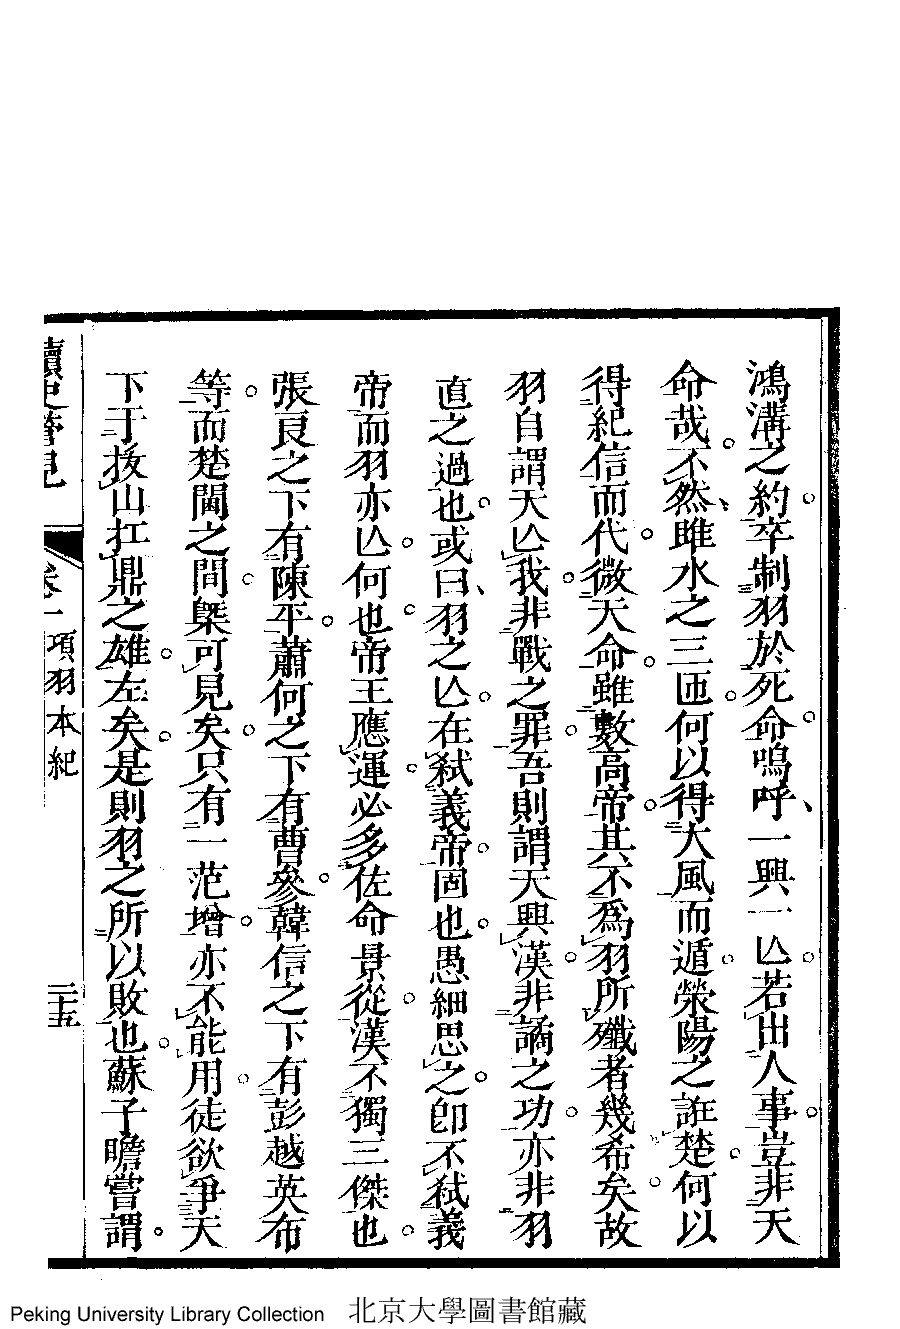 鴻溝之約。卒制羽於死命。嗚呼、一興一亾。若出人事。豈非天
命哉。不然、雎水之三匝。何以得大風而遁。滎陽之誑楚。何以
得紀信而代。微天命。雖數高帝。其不爲羽所殲者幾希矣。故
羽自謂天亾我。非戰之罪。吾則謂天興漢。非譎之功。亦非羽
直之過也。或曰、羽之亾。在弑義帝。固也。愚細思之。卽不弑義
帝而羽亦亾。何也。帝王應運。必多佐命景從。漢不獨三傑也。
張良之下有陳平。蕭何之下有曹參。韓信之下有彭越英布
等。而楚閫之間。槩可見矣。只有一范增。亦不能用。徒欲爭天
下于拔山扛鼎之雄。左矣。是則羽之所以敗也。蘇子瞻嘗謂。
讀史管見 卷一 項羽本紀 三十五
Peking University Library Collection 北京大學圖書館藏